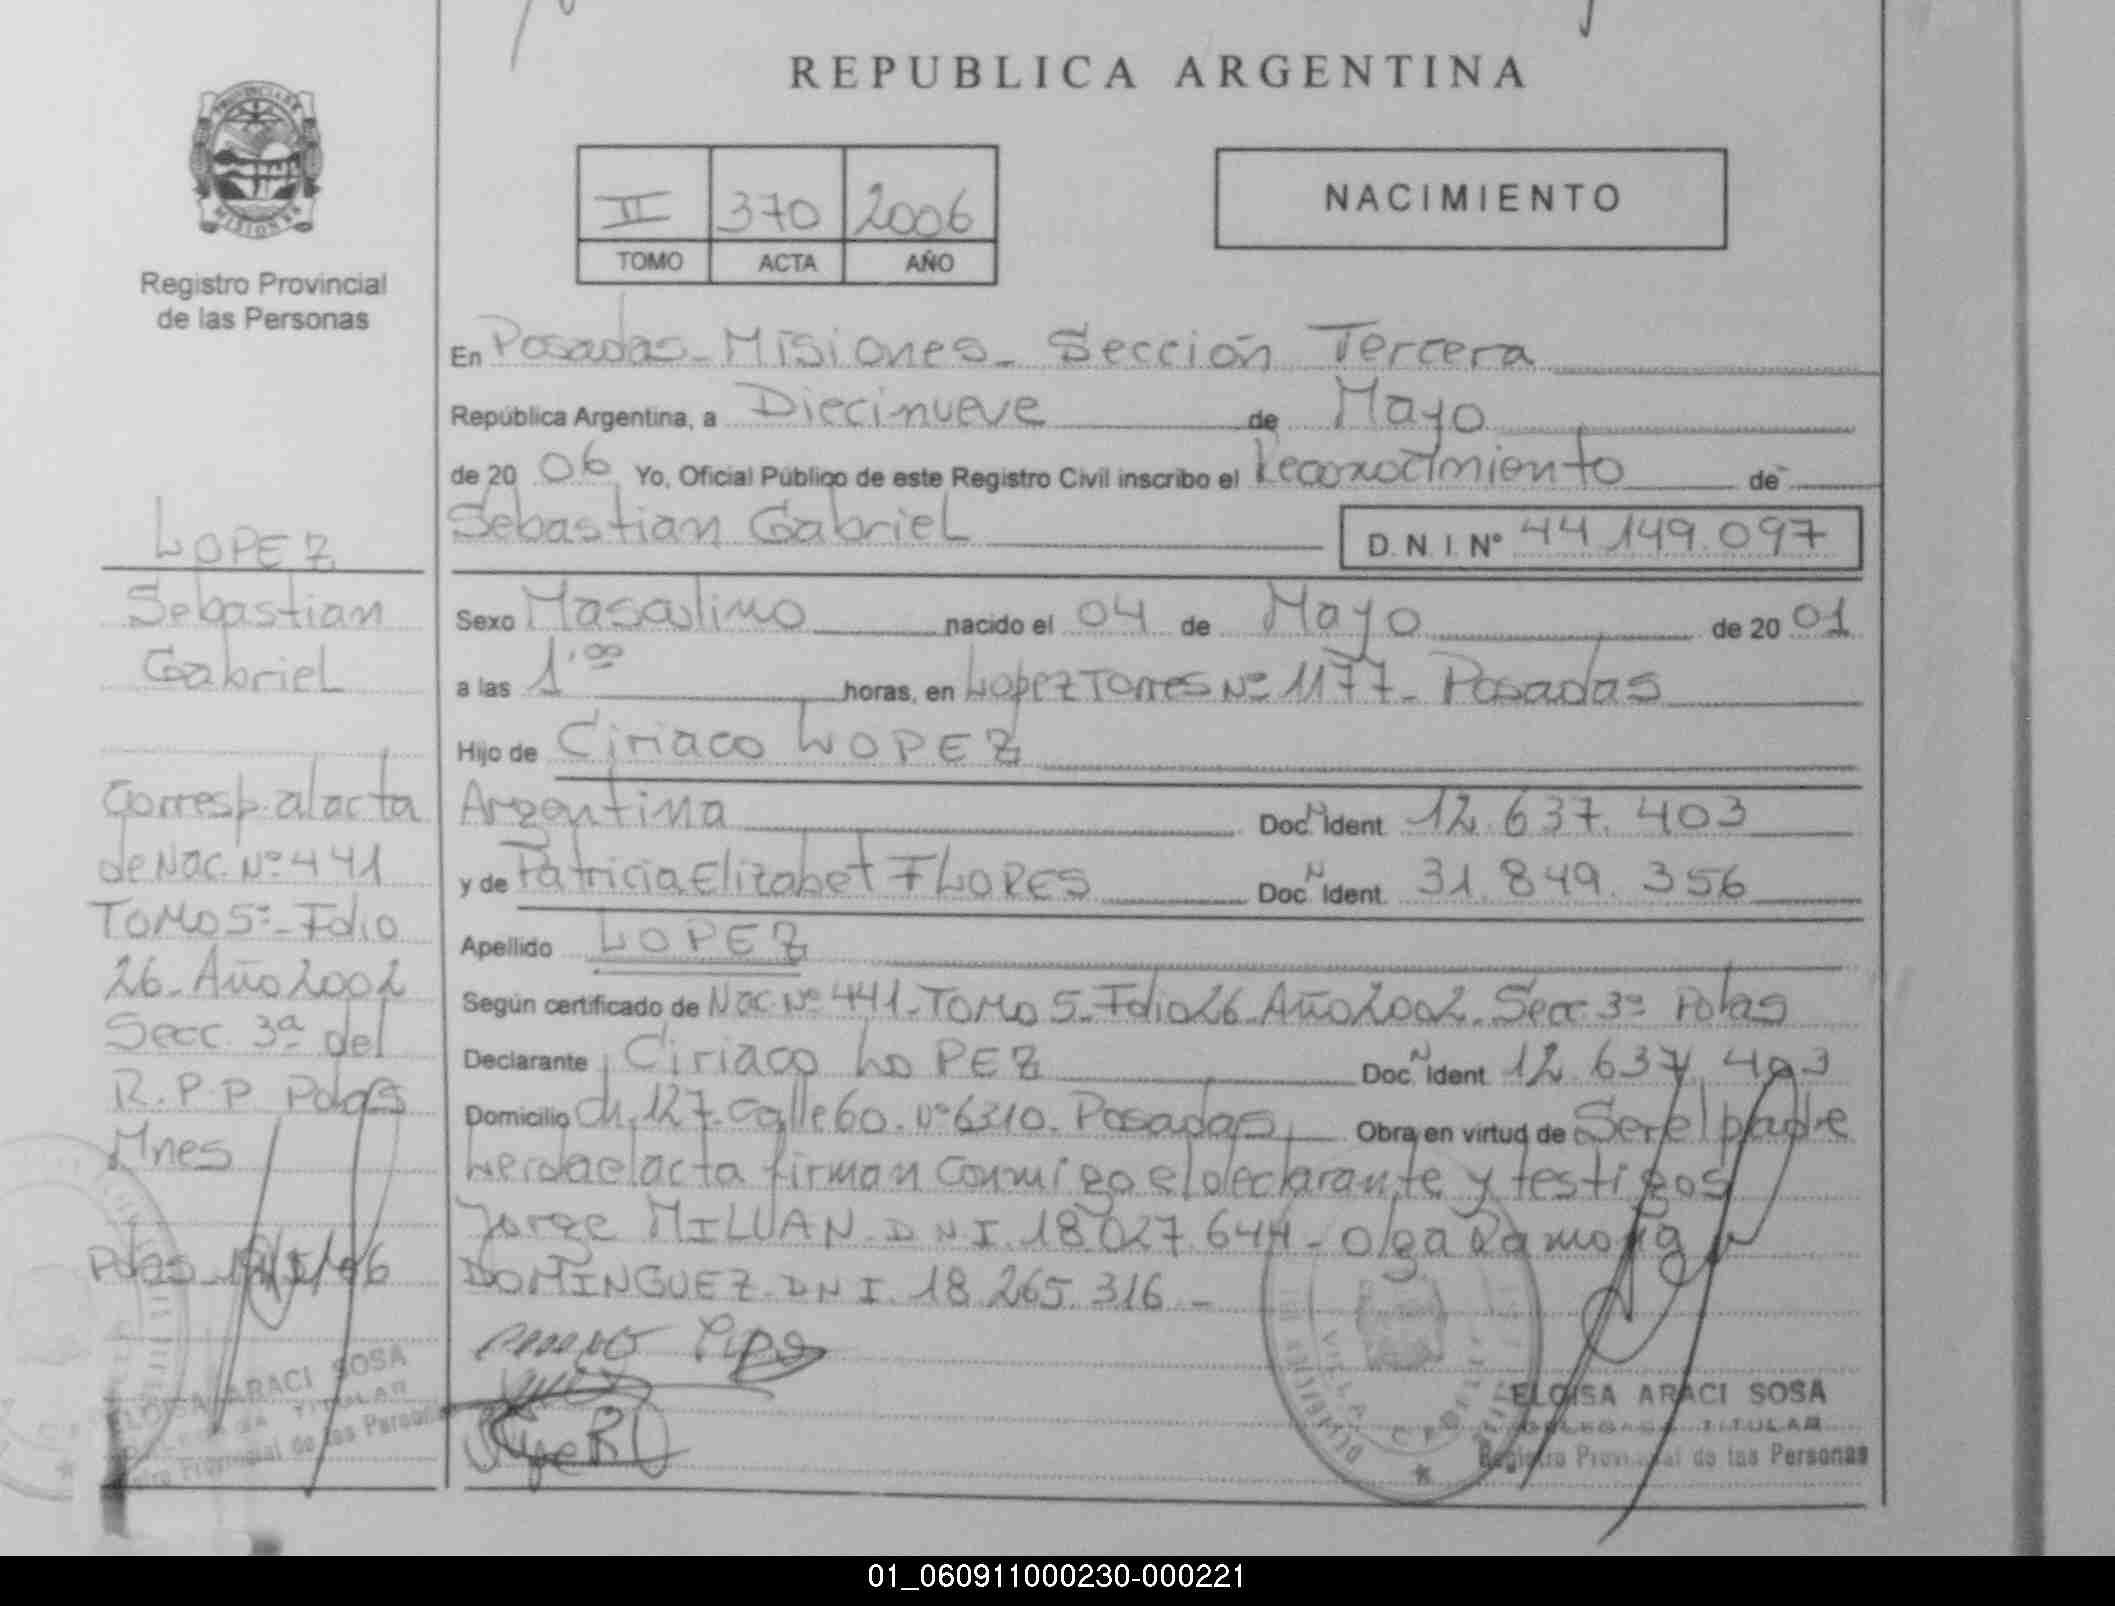 REPUBLICA ARGENTINA
PROVINCIA DE
MISIONES
Registro Provincial
de las Personas
II 370 2006
TOMO ACTA AÑO
NACIMIENTO
En Posadas - Misiones - Sección Tercera
República Argentina, a Diecinueve de Mayo
de 20 06 Yo, Oficial Público de este Registro Civil inscribo el Reconocimiento de
Sebastian Gabriel D.N.I.Nº 44.149.097
Sexo Masculino nacido el 04 de Mayo de 20 01
a las 1.00 horas, en Lopez Torres Nº 1177 - Posadas
Hijo de Ciriaco LOPEZ
Argentina Doc. N Ident 12.637.403
y de Patricia Elizabet FLORES Doc. N Ident. 31.849.356
Apellido LOPEZ
Según certificado de Nac. Nº 441 - Tomo 5 - Folio 26 - Año 2002 - Secc. 3ª Pdas
Declarante Ciriaco LOPEZ Doc. N Ident 12.637.403
Domicilio Ch. 127 - calle 60 - Nº 6310 - Posadas Obra en virtud de Ser el padre
Leida el acta firman conmigo el declarante y testigos
Jorge MILUAN - DNI. 18.027.644 - Olga Ramona
DOMINGUEZ - DNI. 18.265.316 -
ELOISA ARACI SOSA
DELEGADA TITULAR
Registro Provincial de las Personas
LOPEZ
Sebastian
Gabriel
Corresp. al acta
de Nac. Nº 441
Tomo 5º - Folio
26 - Año 2002
Secc. 3ª del
R.P.P Pdas
Mnes
Pdas 19/5/06
ELOISA ARACI SOSA
DELEGADA TITULAR
Registro Provincial de las Personas
01_060911000230-000221